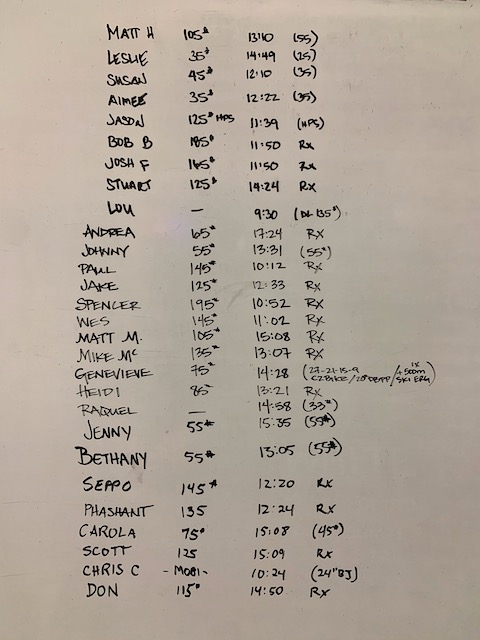 MATT H 105# 13:10 (55)
LESLIE 35# 14:49 (25)
SUSAN 45# 12:10 (35)
AIMEE 35# 12:22 (35)
JASON 125# HPS 11:39 (HPS)
BOB B 185# 11:50 Rx
JOSH F 165# 11:50 Rx
STUART 125# 14:24 Rx
LOU — 9:30 (DL 135#)
ANDREA 65# 17:24 Rx
JOHNNY 55# 13:31 (55#)
PAUL 145# 10:12 Rx
JAKE 125# 12:33 Rx
SPENCER 195# 10:52 Rx
WES 145# 11:02 Rx
MATT M. 105# 15:08 Rx
MIKE Mc 135# 13:07 Rx
GENEVIEVE 75# 14:28 (27-21-15-9 / + 500m SKI ERG)
HEIDI 85# 13:21 Rx
RAQUEL — 14:58 (33#)
JENNY 55# 15:35 (55#)
BETHANY 55# 13:05 (55#)
SEPPO 145# 12:20 Rx
PHASHANT 135 12:24 Rx
CAROLA 75# 15:08 (45#)
SCOTT 125 15:09 Rx
CHRIS C - MOBI - 10:24 (24"BJ)
DON 115# 14:50 Rx